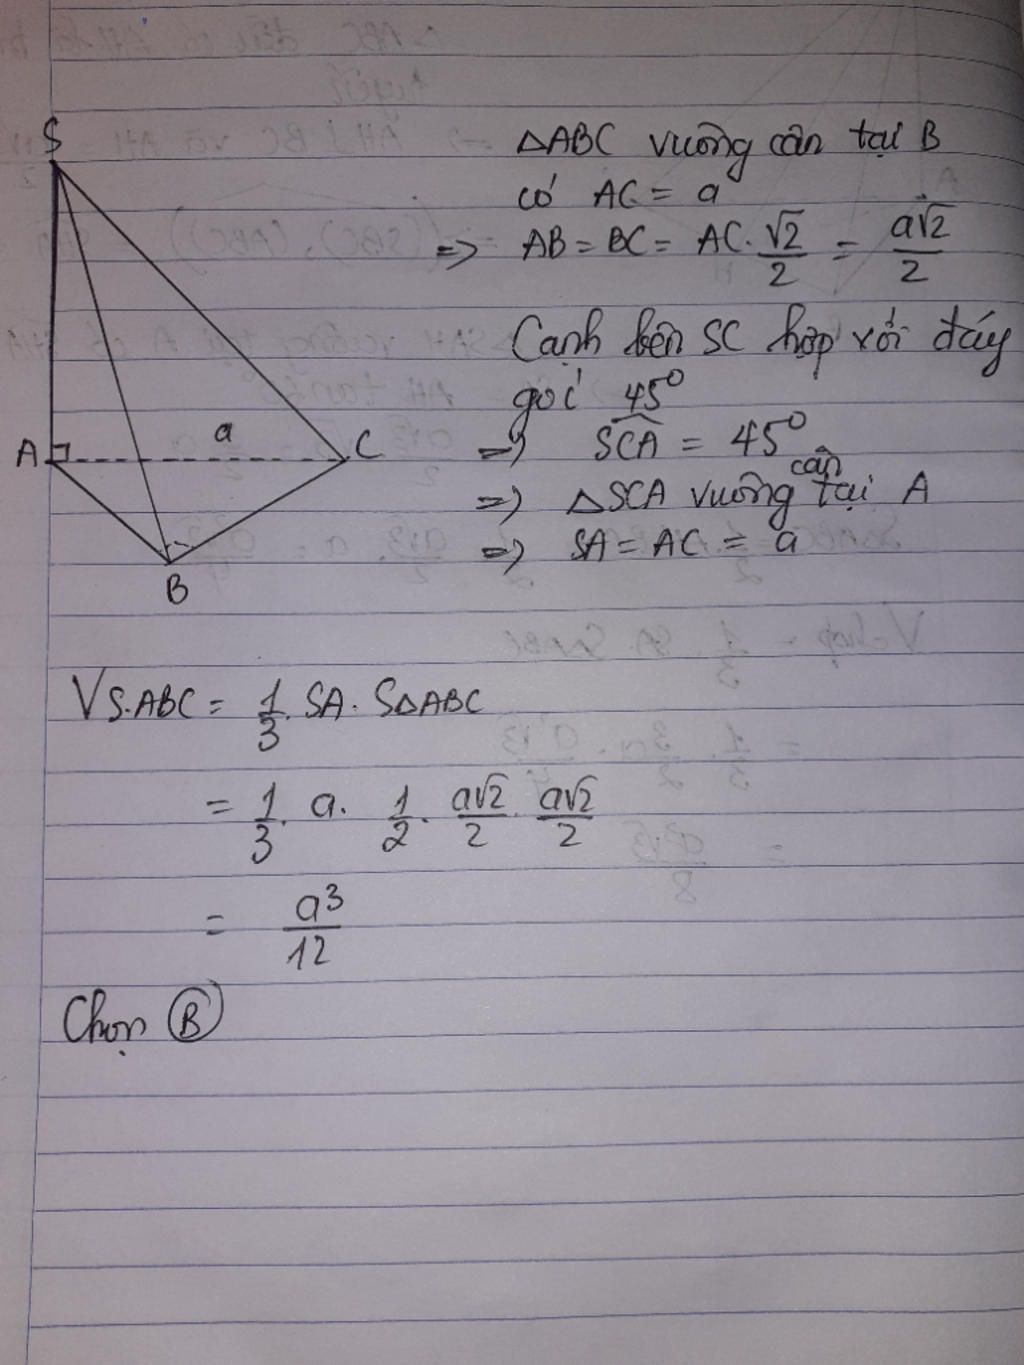 S
A
a
C
B
ΔABC vuông cân tại B
có AC = a
=> AB = BC = AC. √2/2 = a√2/2
Cạnh bên SC hợp với đáy
góc 45°
=> SCA = 45°
=> ΔSCA vuông cân tại A
=> SA = AC = a
VS.ABC = 1/3. SA. SΔABC
= 1/3. a. 1/2. a√2/2. a√2/2
= a³/12
Chọn B